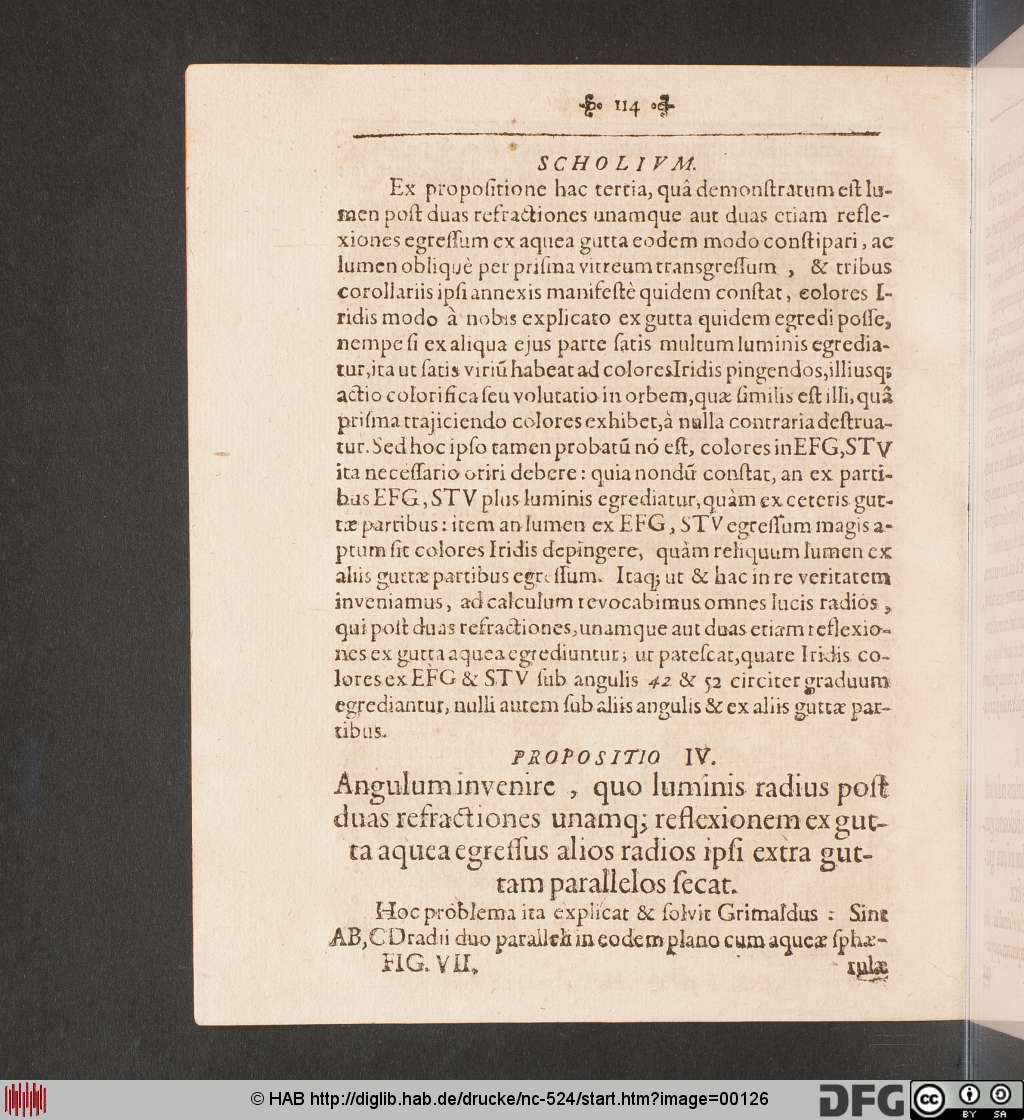 114
SCHOLIVM.
Ex propoſitione hac tertia, quâ demonſtratum eſt lu-
men poſt duas refractiones unamque aut duas etiam refle-
xiones egreſſum ex aquea gutta eodem modo conſtipari, ac
lumen obliquè per priſma vitreum transgreſſum, & tribus
corollariis ipſi annexis manifeſtè quidem conſtat, colores I-
ridis modo à nobis explicato ex gutta quidem egredi poſſe,
nempe ſi ex aliqua ejus parte ſatis multum luminis egredia-
tur, ita ut ſatis viriū habeat ad colores Iridis pingendos, illiusq;
actio colorifica ſeu volutatio in orbem, quæ ſimilis eſt illi, quâ
priſma trajiciendo colores exhibet, à nulla contraria deſtrua-
tur. Sed hoc ipſo tamen probatū nō eſt, colores in EFG, STV
ita neceſſario oriri debere: quia nondū conſtat, an ex parti-
bus EFG, STV plus luminis egrediatur, quàm ex ceteris gut-
tæ partibus: item an lumen ex EFG, STV egreſſum magis a-
ptum ſit colores Iridis depingere, quàm reliquum lumen ex
aliis guttæ partibus egreſſum. Itaq; ut & hac in re veritatem
inveniamus, ad calculum revocabimus omnes lucis radios,
qui poſt duas refractiones, unamque aut duas etiam reflexio-
nes ex gutta aquea egrediuntur; ut pateſcat, quare Iridis co-
lores ex EFG & STV ſub angulis 42 & 52 circiter graduum
egrediantur, nulli autem ſub aliis angulis & ex aliis guttæ par-
tibus.
PROPOSITIO IV.
Angulum invenire, quo luminis radius poſt
duas refractiones unamq; reflexionem ex gut-
ta aquea egreſſus alios radios ipſi extra gut-
tam parallelos ſecat.
Hoc problema ita explicat & ſolvit Grimaldus: Sint
AB, CD radii duo paralleli in eodem plano cum aqueæ ſphæ-
FIG. VII. rulæ
© HAB http://diglib.hab.de/drucke/nc-524/start.htm?image=00126
DFG
cc BY SA